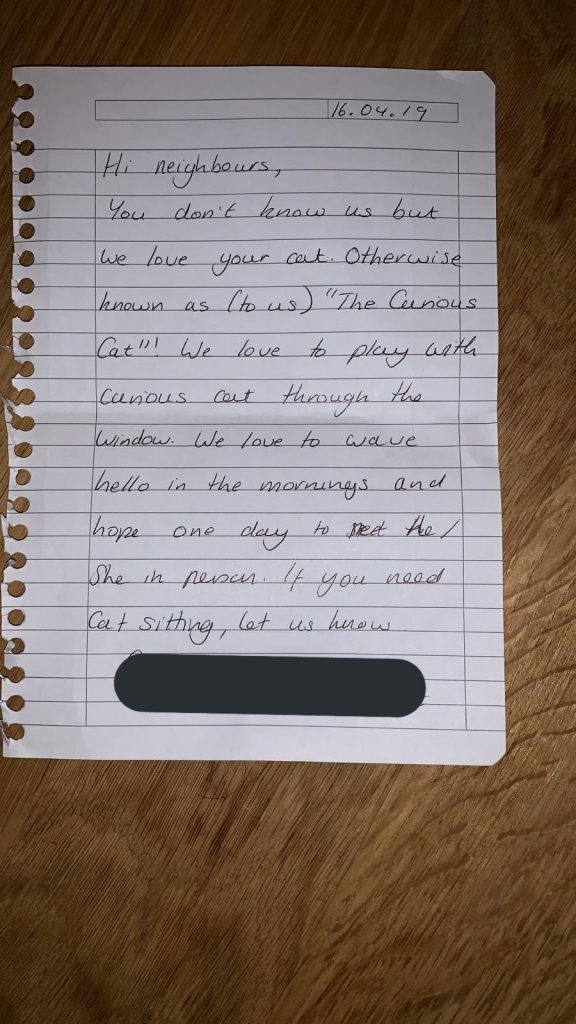 16.04.19
Hi neighbours,
You don't know us but
we love your cat. Otherwise
known as (to us) "The Curious
Cat"! We love to play with
curious cat through the
window. We love to wave
hello in the mornings and
hope one day to meet he/
She in person. If you need
Cat sitting, let us know